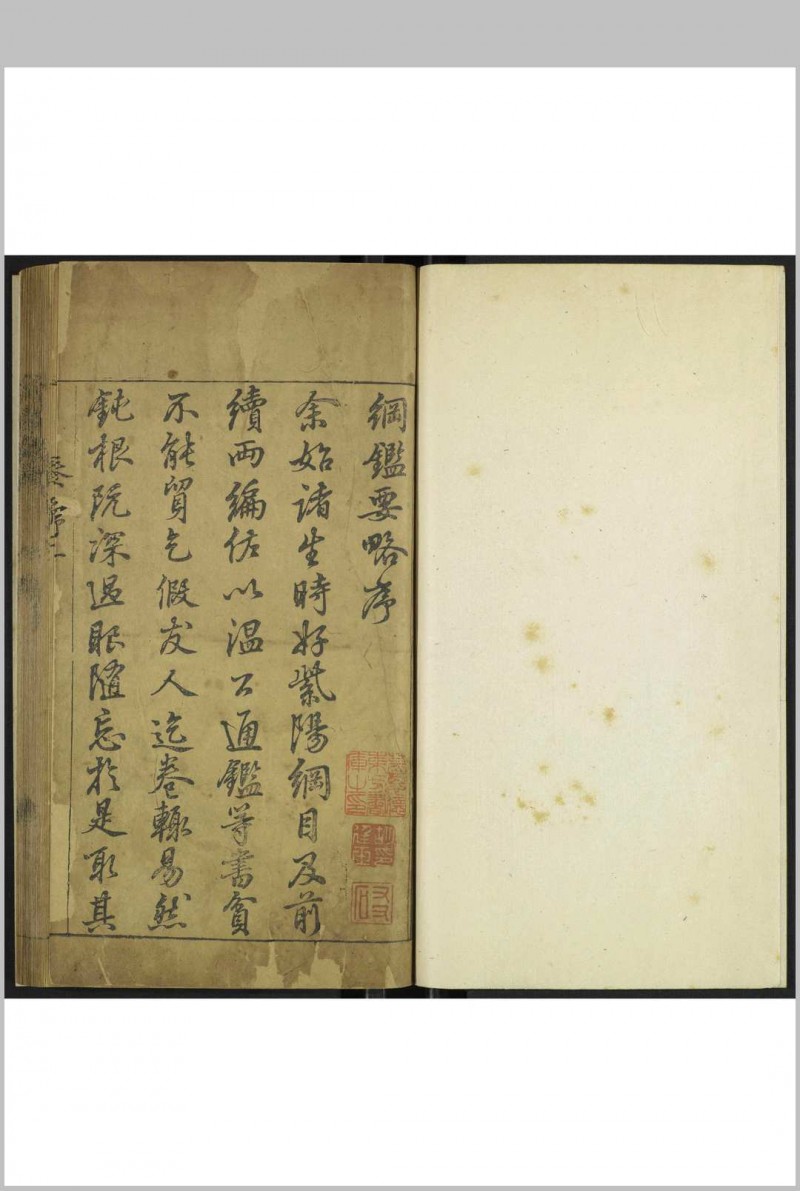 綱鑑要略序
余始諸生時好紫陽綱目及前
續兩編佐以溫公通鑑等書貧
不能貿乞假友人迄卷輒易然
鈍根既深過眼隨忘於是取其